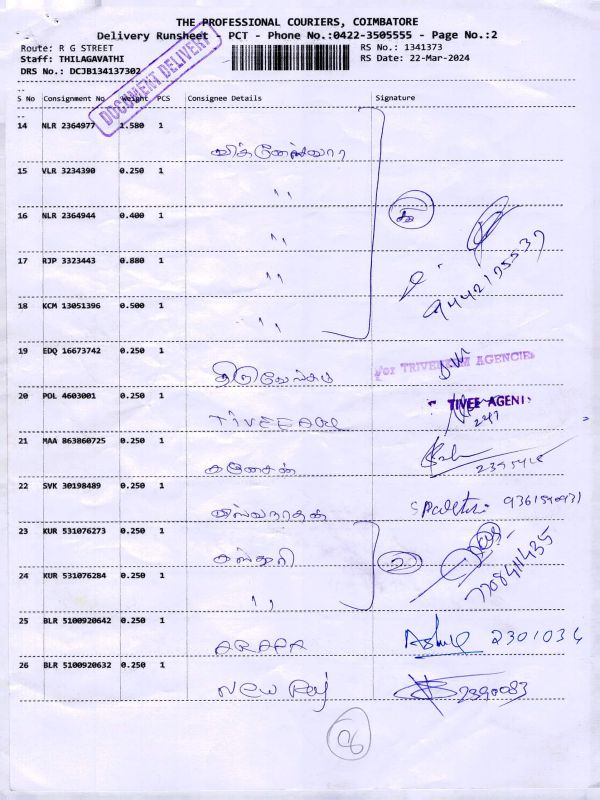 THE PROFESSIONAL COURIERS, COIMBATORE
Delivery Runsheet - PCT - Phone No.:0422-3505555 - Page No.:2
Route: R G STREET
RS No.: 1341373
Staff: THILAGAVATHI
RS Date: 22-Mar-2024
DRS No.: DCJB134137302
DOCUMENT DELIVERY
S No Consignment No Weight PCS Consignee Details Signature
14 NLR 2364977 1.580 1
15 VLR 3234390 0.250 1 ,,
16 NLR 2364944 0.400 1 ,,
17 RJP 3323443 0.880 1 ,,
9442175537
18 KCM 13051396 0.500 1 ,,
19 EDQ 16673742 0.250 1
For TRIVENUM AGENCIES
20 POL 4603001 0.250 1
TIVEE AGENI
21 MAA 863860725 0.250 1 கணேசன்
22 SVK 30198489 0.250 1 விஸ்வநாதன்
23 KUR 531076273 0.250 1 கஸ்தூரி
2
7708411435
24 KUR 531076284 0.250 1 ,,
25 BLR 5100920642 0.250 1 2301034
26 BLR 5100920632 0.250 1 New Raj 2390083